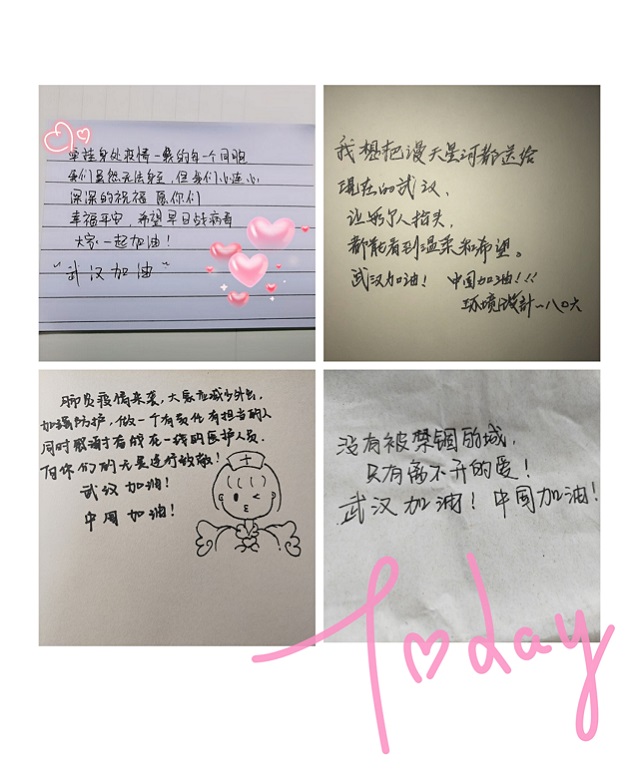 牵挂身处疫情一线的每一个同胞
我们虽然无法亲至，但我们心连心
深深的祝福 愿你们
幸福平安，希望早日战病毒
大家一起加油！
“武汉加油”
我想把漫天星河都送给
现在的武汉、
让 人抬头，
都能看到温柔和希望。
武汉加油！ 中国加油！！！
环境设计一八〇六
疫情来袭，大家应减少外出，
加强防护，做一个有责任有担当的人
同时 战在一线的医护人员．
向你们的无畏逆行致敬！
武汉加油！
中国加油！
没有被禁锢的城，
只有离不开的爱！
武汉加油！中国加油！
Today